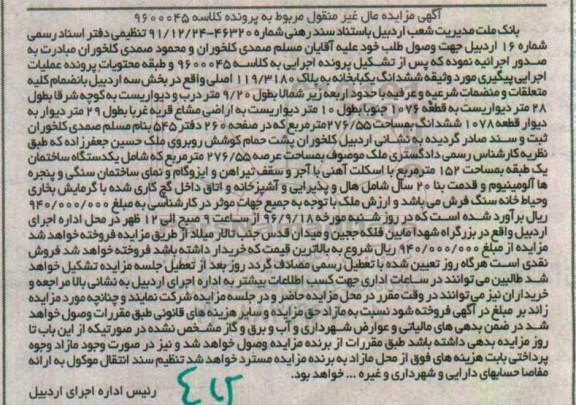 آگهی مزایده مال غیر منقول مربوط به پرونده کلاسه ۹۶۰۰۰۴۵
بانک ملت مدیریت شعب اردبیل باستناد سند رهنی شماره ۴۶۳۲۰-۹۱/۱۲/۲۴ تنظیمی دفتر اسناد رسمی
شماره ۱۶ اردبیل جهت وصول طلب خود علیه آقایان مسلم صمدی کلخوران و محمود صمدی کلخوران مبادرت به
صدور اجرائیه نموده که پس از تشکیل پرونده اجرایی به کلاسه ۹۶۰۰۰۴۵ و طبقه محتویات پرونده عملیات
اجرایی پیگیری مورد وثیقه ششدانگ یکبابخانه به پلاک ۱۱۹/۳۱۸۰ اصلی واقع در بخش سه اردبیل بانضمام کلیه
متعلقات و منضمات شرعیه و عرفیه با حدود اربعه زیر شمالا بطول ۹/۲۰ متر درب و دیواریست به کوچه شرقا بطول
۲۸ متر دیواریست به قطعه ۱۰۷۶ جنوبا بطول ۱۰ متر دیواریست به اراضی مشاع قریه غربا بطول ۲۹ متر دیوار به
دیوار قطعه ۱۰۷۸ ششدانگ بمساحت ۲۷۶/۵۵ مترمربع که در صفحه ۲۶۰ دفتر ۵۴۵ بنام مسلم صمدی کلخوران
ثبت و سند صادر گردیده به نشانی اردبیل کلخوران پشت حمام کوشش روبروی ملک حسین جعفرزاده که طبق
نظریه کارشناس رسمی دادگستری ملک موصوف بمساحت عرصه ۲۷۶/۵۵ مترمربع که شامل یکدستگاه ساختمان
یک طبقه بمساحت ۱۵۲ مترمربع با اسکلت آهنی با آجر و سقف تیراهن و ایزوگام و نمای ساختمان سنگی و پنجره
ها آلومینیوم و قدمت بنا ۲۰ سال شامل هال و پذیرایی و آشپزخانه و اتاق داخل گچ کاری شده با گرمایش بخاری
وحیاط خانه سنگ فرش می باشد و ارزش ملک با توجه به جمیع جهات موثر در کارشناسی به مبلغ ۹۴۰/۰۰۰/۰۰۰
ریال برآورد شده است که در روز شنبه مورخه ۹۶/۹/۱۸ از ساعت ۹ صبح الی ۱۲ ظهر در محل اداره اجرای
اردبیل واقع در بزرگراه شهدا مابین فلکه ججین و میدان قدس جنب تالار میلاد از طریق مزایده فروخته خواهد شد
مزایده از مبلغ ۹۴۰/۰۰۰/۰۰۰ ریال شروع به بالاترین قیمت که خریدار داشته باشد فروخته خواهد شد فروش
نقدی است هرگاه روز تعیین شده با تعطیل رسمی مصادف گردد روز بعد از تعطیل جلسه مزایده تشکیل خواهد
شد طالبین می توانند در ساعات اداری جهت کسب اطلاعات بیشتر به اداره اجرای اردبیل به نشانی بالا مراجعه و
خریداران نیز می توانند در وقت مقرر در محل مزایده حاضر و در جلسه مزایده شرکت نمایند و چنانچه مورد مزایده
زائد بر مبلغ در آگهی فروخته شود نسبت به مازاد حق مزایده و سایر هزینه های قانونی طبق مقررات وصول خواهد
شد در ضمن بدهی های مالیاتی و عوارض شهرداری و آب و برق و گاز مشخص نشده در صورتیکه از این باب تا
روز مزایده بدهی داشته باشد طبق مقررات از برنده مزایده وصول خواهد شد و نیز در صورت وجود مازاد وجوه
پرداختی بابت هزینه های فوق از محل مازاد به برنده مزایده مسترد خواهد شد تنظیم سند انتقال موکول به ارائه
مفاصا حسابهای دارایی و شهرداری و غیره ... خواهد بود.
رئیس اداره اجرای اردبیل